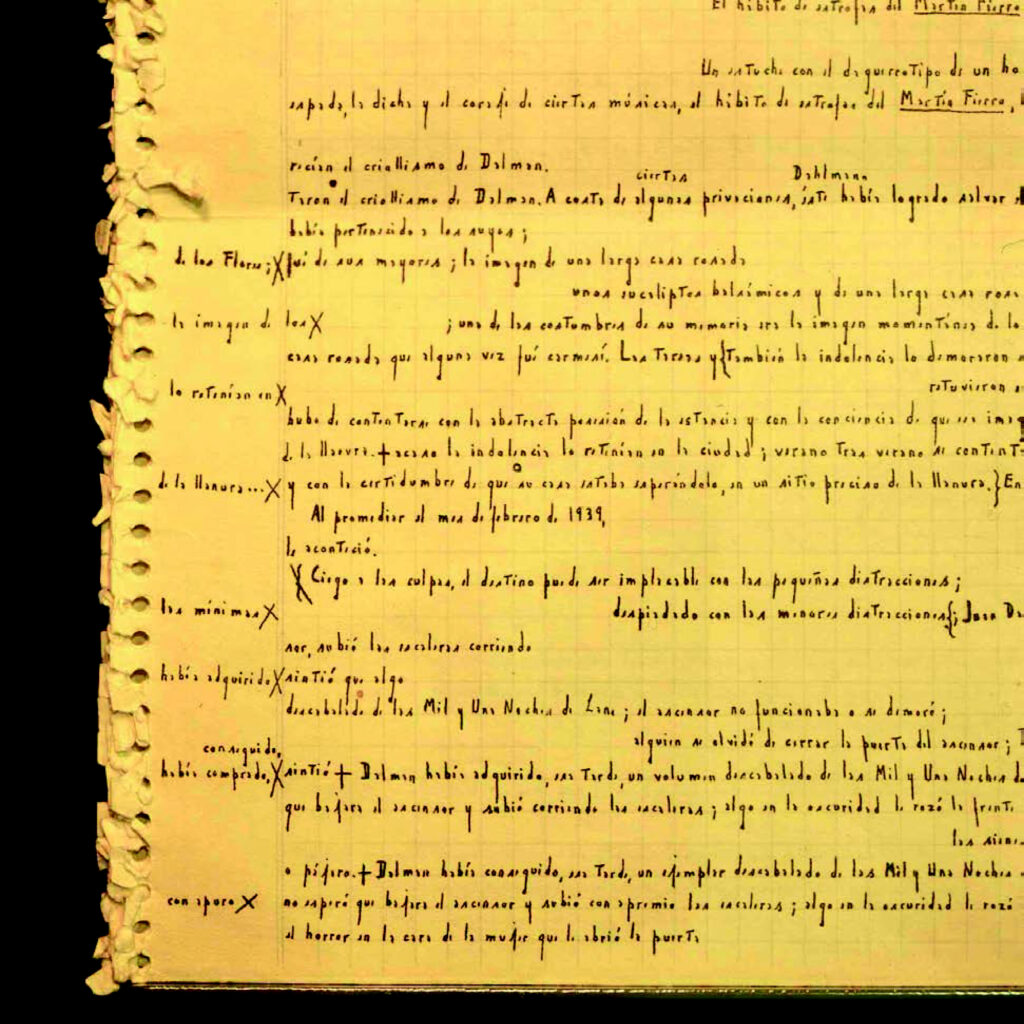 El hábito de estrofas del Martín Fierro
Un estuche con el daguerrotipo de un ho
espada, la dicha y el coraje de ciertas músicas, el hábito de estrofas del Martín Fierro,
recían el criollismo de Dalman.
ciertas Dahlmann
taron el criollismo de Dalman. A costa de algunas privaciones, éste había logrado salvar
había pertenecido a los suyos;
de los Flores; X fué de sus mayores; la imagen de una larga casa rosada
unos eucaliptos balsámicos y de una larga casa rosa
la imagen de los X ; una de las costumbres de su memoria era la imagen momentánea de lo
casa rosada que alguna vez fué carmesí. Las tareas y {también la indolencia lo demoraron
lo retenían en X retuvieron
hubo de contentarse con la abstracta posesión de la estancia y con la conciencia de que esa imag
de la llanura. + acaso la indolencia lo retenían en la ciudad; verano tras verano se content
de la llanura... X y con la certidumbre de que su casa estaba esperándolo, en un sitio preciso de la llanura.} En
Al promediar el mes de febrero de 1939,
le aconteció.
X Ciego a las culpas, el destino puede ser implacable con las pequeñas distracciones;
las mínimas X despiadado con las menores distracciones{; Juan Da
sor, subió las escaleras corriendo
había adquirido X sintió que algo
descabalado de las Mil y Una Noches de Lane; el ascensor no funcionaba o se demoró;
alguien se olvidó de cerrar la puerta del ascensor;
conseguido,
había comprado, X sintió + Dalman había adquirido, esa tarde, un volumen descabalado de las Mil y Una Noches de
que bajara el ascensor y subió corriendo las escaleras; algo en la oscuridad le rozó la frente
las
o pájaro. + Dalman había conseguido, esa tarde, un ejemplar descabalado de las Mil y Una Noches
con apuro X no esperó que bajara el ascensor y subió con apremio las escaleras; algo en la oscuridad le rozó
el horror en la cara de la mujer que le abrió la puerta